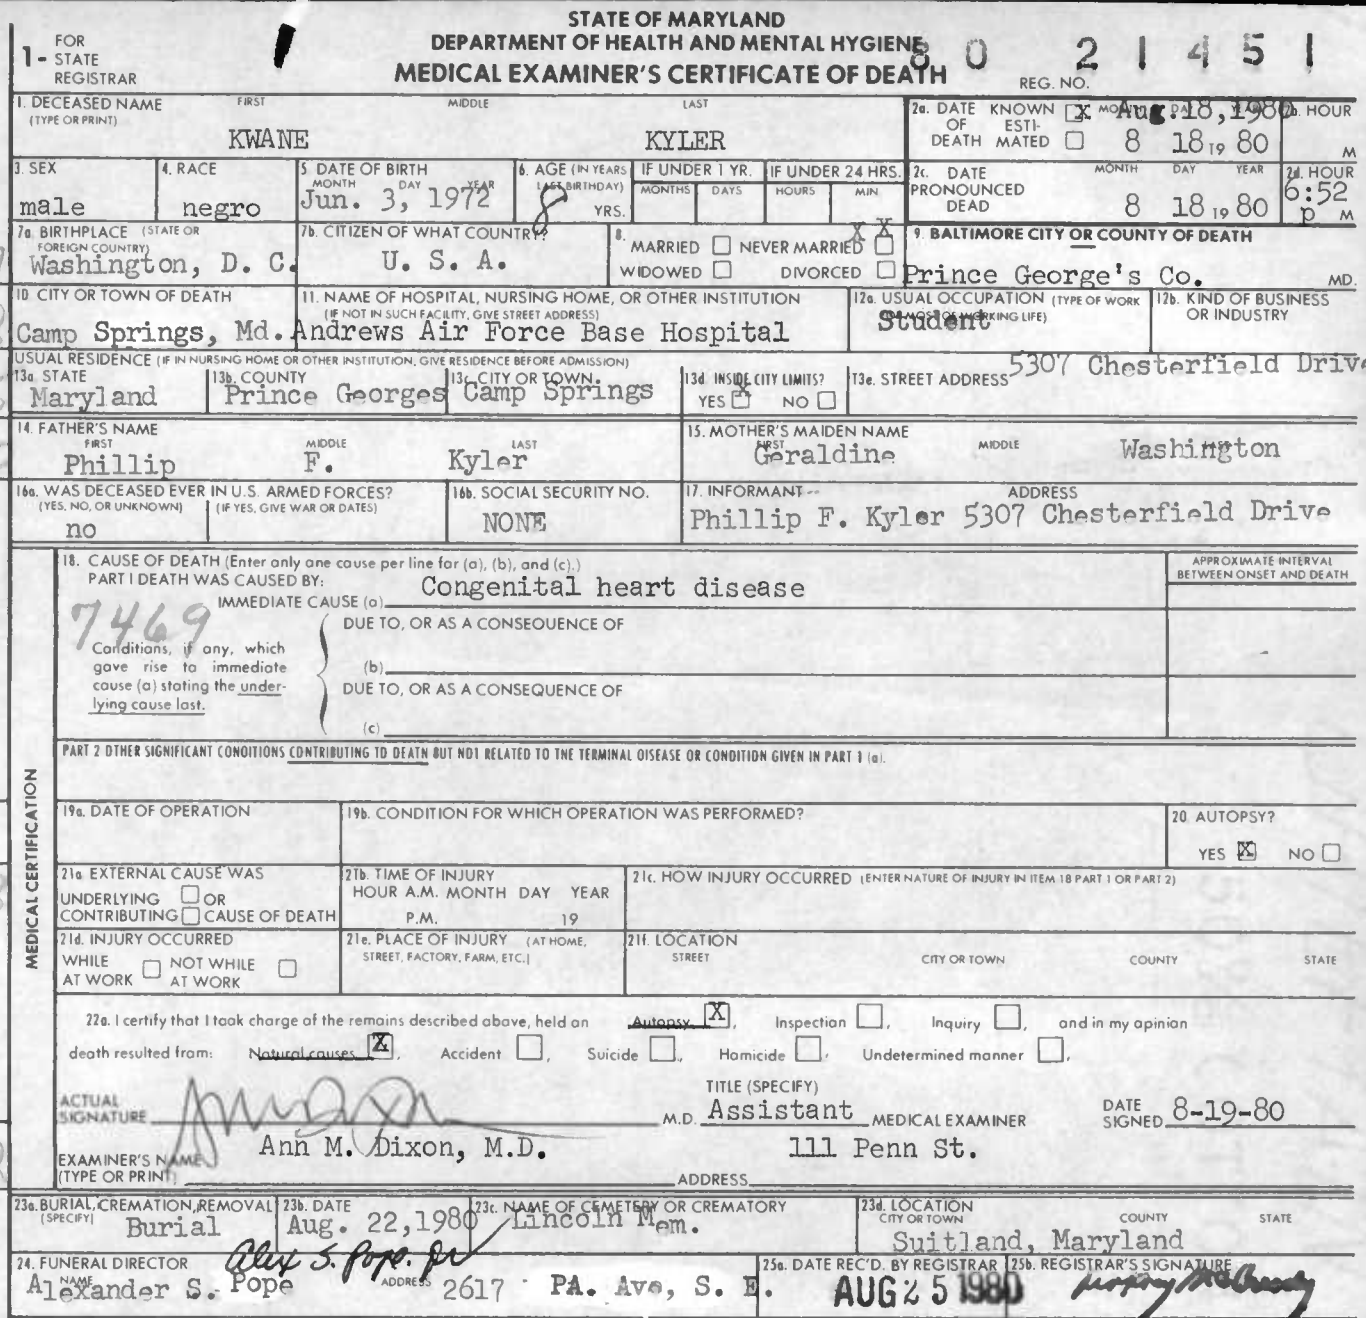 STATE OF MARYLAND
DEPARTMENT OF HEALTH AND MENTAL HYGIENE
MEDICAL EXAMINER'S CERTIFICATE OF DEATH
1- FOR STATE REGISTRAR
REG. NO. 80 21451
1. DECEASED NAME (TYPE OR PRINT) FIRST MIDDLE LAST
KWANE KYLER
2a. DATE OF DEATH KNOWN X ESTIMATED MONTH DAY YEAR Aug. 18, 1980
8 18 19 80
2b. HOUR M
3. SEX
male
4. RACE
negro
5. DATE OF BIRTH MONTH DAY YEAR
Jun. 3, 1972
6. AGE (IN YEARS LAST BIRTHDAY)
8 YRS.
IF UNDER 1 YR. MONTHS DAYS
IF UNDER 24 HRS. HOURS MIN
2c. DATE PRONOUNCED DEAD MONTH DAY YEAR
8 18 19 80
2d. HOUR
6:52 p M
7a. BIRTHPLACE (STATE OR FOREIGN COUNTRY)
Washington, D. C.
7b. CITIZEN OF WHAT COUNTRY?
U. S. A.
8. MARRIED NEVER MARRIED X X
WIDOWED DIVORCED
9. BALTIMORE CITY OR COUNTY OF DEATH
Prince George's Co. MD.
10. CITY OR TOWN OF DEATH
Camp Springs, Md.
11. NAME OF HOSPITAL, NURSING HOME, OR OTHER INSTITUTION
(IF NOT IN SUCH FACILITY, GIVE STREET ADDRESS)
Andrews Air Force Base Hospital
12a. USUAL OCCUPATION (TYPE OF WORK MOST OF WORKING LIFE)
Student
12b. KIND OF BUSINESS OR INDUSTRY
USUAL RESIDENCE (IF IN NURSING HOME OR OTHER INSTITUTION, GIVE RESIDENCE BEFORE ADMISSION)
13a. STATE
Maryland
13b. COUNTY
Prince Georges
13c. CITY OR TOWN.
Camp Springs
13d. INSIDE CITY LIMITS?
YES X NO
13e. STREET ADDRESS 5307 Chesterfield Drive
14. FATHER'S NAME
FIRST MIDDLE LAST
Phillip F. Kyler
15. MOTHER'S MAIDEN NAME
FIRST MIDDLE
Geraldine Washington
16a. WAS DECEASED EVER IN U.S. ARMED FORCES?
(YES, NO, OR UNKNOWN) (IF YES, GIVE WAR OR DATES)
no
16b. SOCIAL SECURITY NO.
NONE
17. INFORMANT ADDRESS
Phillip F. Kyler 5307 Chesterfield Drive
MEDICAL CERTIFICATION
18. CAUSE OF DEATH (Enter only one cause per line for (a), (b), and (c).)
PART I DEATH WAS CAUSED BY:
IMMEDIATE CAUSE (a) Congenital heart disease
APPROXIMATE INTERVAL BETWEEN ONSET AND DEATH
7469
DUE TO, OR AS A CONSEQUENCE OF
Conditions, if any, which gave rise to immediate cause (a) stating the underlying cause last.
(b)
DUE TO, OR AS A CONSEQUENCE OF
(c)
PART 2 OTHER SIGNIFICANT CONDITIONS CONTRIBUTING TO DEATH BUT NOT RELATED TO THE TERMINAL DISEASE OR CONDITION GIVEN IN PART 1 (a).
19a. DATE OF OPERATION
19b. CONDITION FOR WHICH OPERATION WAS PERFORMED?
20. AUTOPSY?
YES X NO
21a. EXTERNAL CAUSE WAS
UNDERLYING OR
CONTRIBUTING CAUSE OF DEATH
21b. TIME OF INJURY
HOUR A.M. MONTH DAY YEAR
P.M. 19
21c. HOW INJURY OCCURRED (ENTER NATURE OF INJURY IN ITEM 18 PART 1 OR PART 2)
21d. INJURY OCCURRED
WHILE AT WORK NOT WHILE AT WORK
21e. PLACE OF INJURY (AT HOME, STREET, FACTORY, FARM, ETC.)
21f. LOCATION
STREET CITY OR TOWN COUNTY STATE
22a. I certify that I took charge of the remains described above, held an Autopsy X, Inspection , Inquiry , and in my opinion
death resulted from: Natural causes X, Accident , Suicide , Homicide , Undetermined manner ,
ACTUAL SIGNATURE M.D.
TITLE (SPECIFY)
Assistant MEDICAL EXAMINER
DATE SIGNED 8-19-80
EXAMINER'S NAME (TYPE OR PRINT) Ann M. Dixon, M.D.
ADDRESS 111 Penn St.
23a. BURIAL, CREMATION, REMOVAL (SPECIFY)
Burial
23b. DATE
Aug. 22, 1980
23c. NAME OF CEMETERY OR CREMATORY
Lincoln Mem.
23d. LOCATION
CITY OR TOWN COUNTY STATE
Suitland, Maryland
24. FUNERAL DIRECTOR Alex S. Pope. Jr
NAME Alexander S. Pope ADDRESS 2617 PA. Ave, S. E.
25a. DATE REC'D. BY REGISTRAR
AUG 25 1980
25b. REGISTRAR'S SIGNATURE